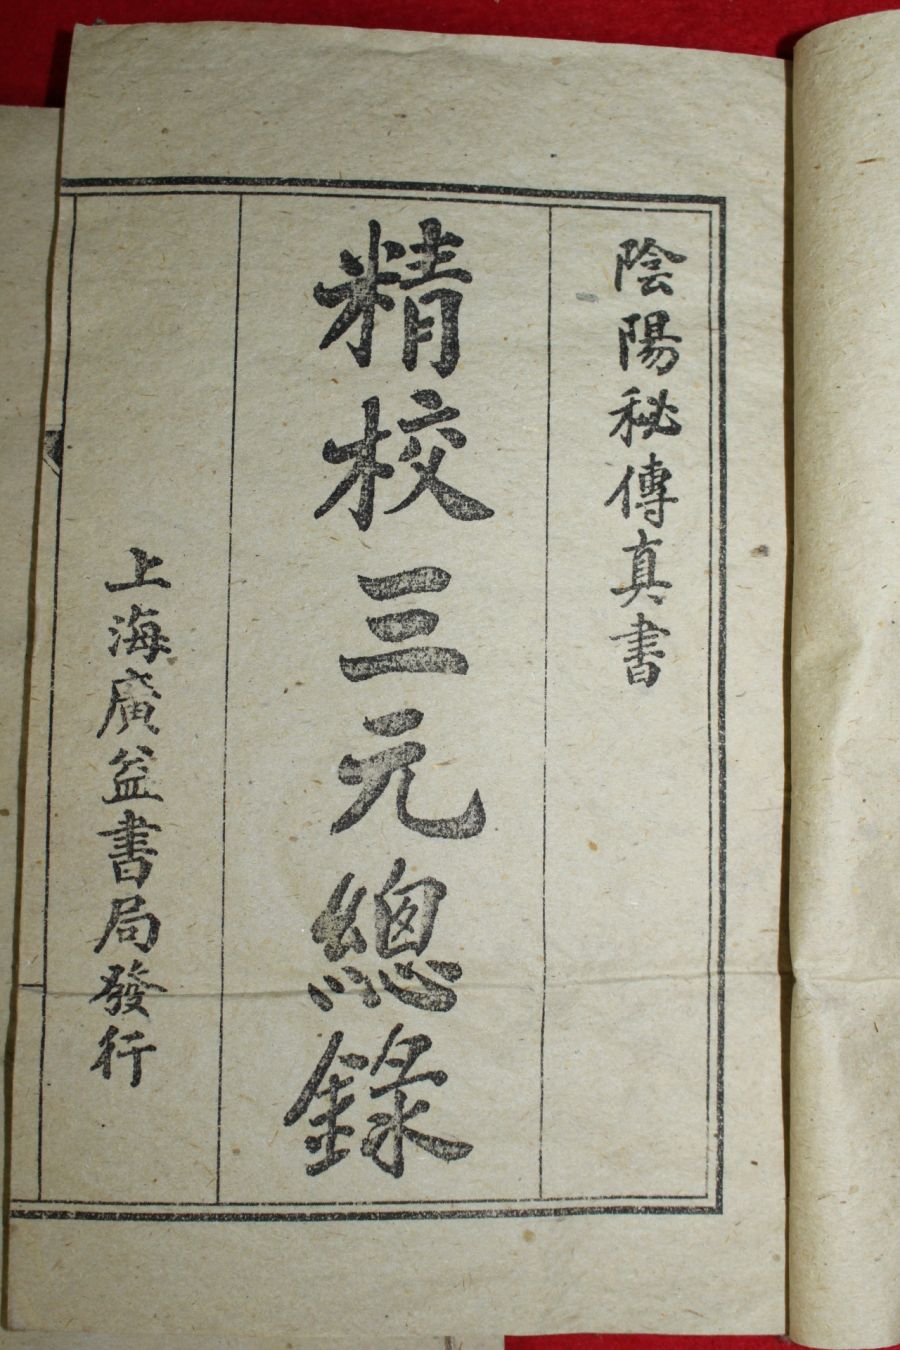 陰陽秘傳真書
精校三元總錄
上海廣益書局發行